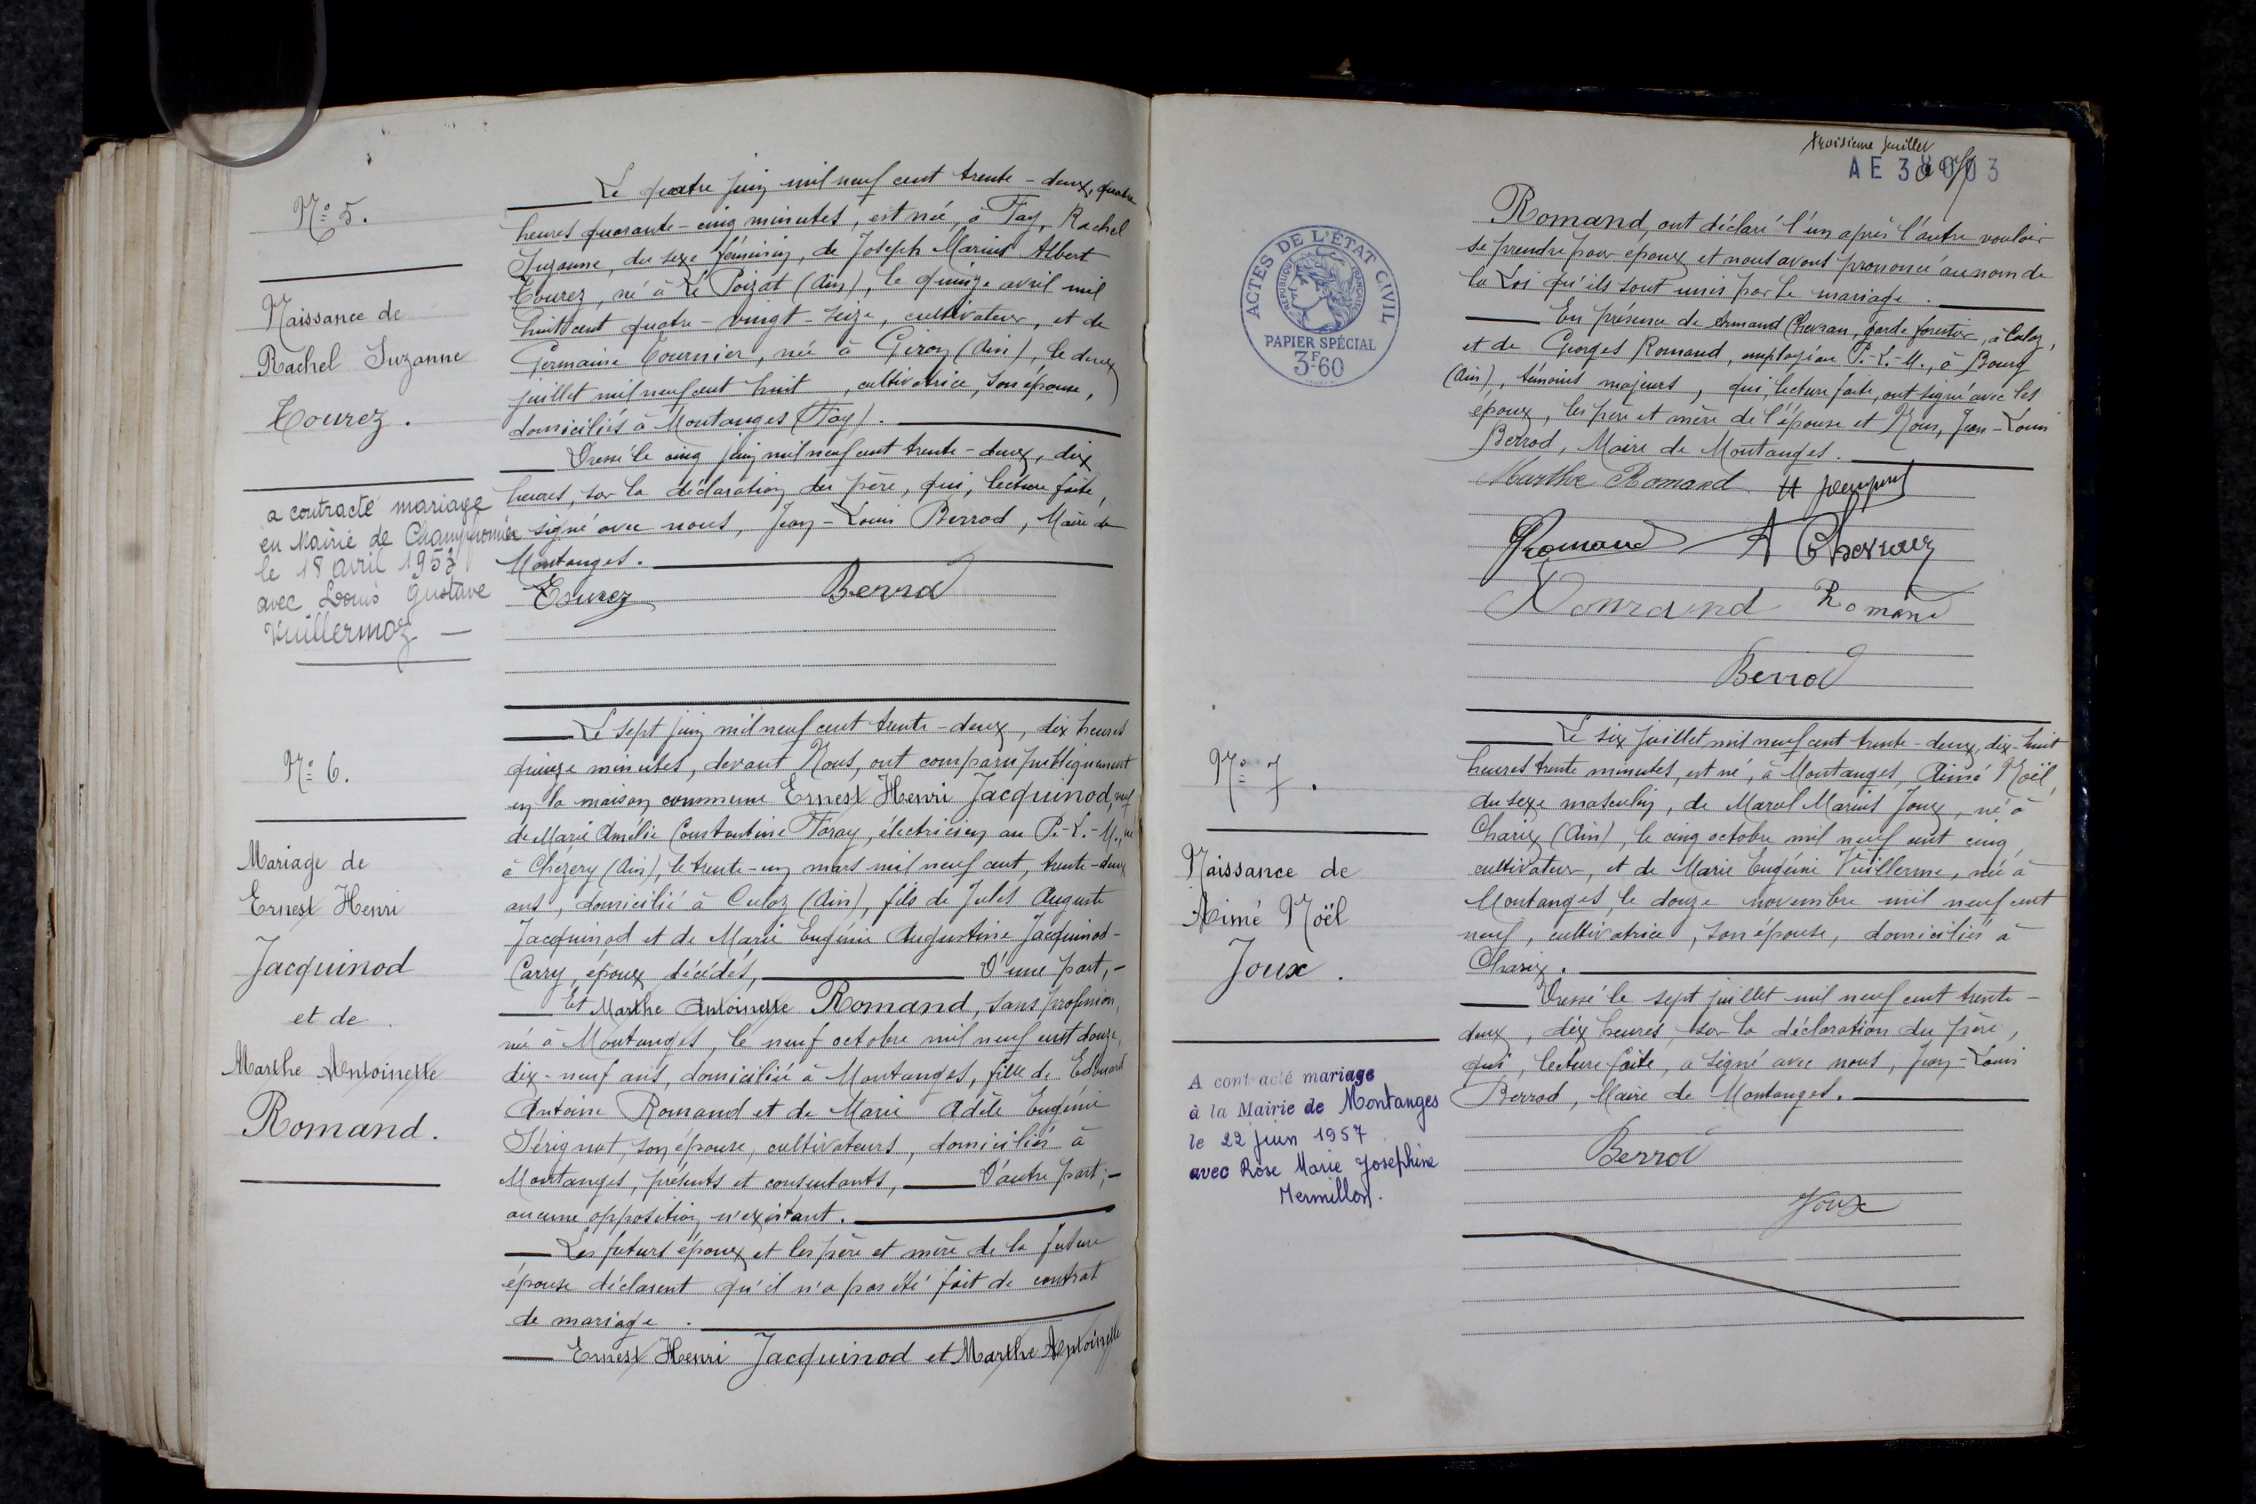 N° 5.
Naissance de
Rachel Suzanne
Tourez.
a contracté mariage
en Mairie de Champfromier
le 18 avril 1953
avec Louis Gustave
Vuillermoz
Le quatre juin mil neuf cent trente-deux, quatre
heures quarante-cinq minutes, est née, à Fay, Rachel
Suzanne, du sexe féminin, de Joseph Marius Albert
Tourez, né à Le Poizat (Ain), le quinze avril mil
huit cent quatre-vingt-seize, cultivateur, et de
Germaine Tournier, née à Giron (Ain), le deux
juillet mil neuf cent huit, cultivatrice, son épouse,
domiciliés à Montanges (Fay).
Dressé le cinq juin mil neuf cent trente-deux, dix
heures, sur la déclaration du père, qui, lecture faite,
a signé avec nous, Jean-Louis Berrod, Maire de
Montanges.
Tourez Berrod
N° 6.
Mariage de
Ernest Henri
Jacquinod
et de
Marthe Antoinette
Romand.
Le sept juin mil neuf cent trente-deux, dix heures
quinze minutes, devant Nous, ont comparu publiquement
en la maison commune Ernest Henri Jacquinod, veuf
de Marie Amélie Constantine Foray, électricien au P.-L.-M., né
à Chézery (Ain), le trente-un mars mil neuf cent, trente-deux
ans, domicilié à Culoz (Ain), fils de Jules Auguste
Jacquinod et de Marie Eugénie Augustine Jacquinod-
Carry, époux décédés, D'une part,-
Et Marthe Antoinette Romand, sans profession,
née à Montanges, le neuf octobre mil neuf cent douze,
dix-neuf ans, domiciliée à Montanges, fille de Edouard
Antoine Romand et de Marie Adèle Eugénie
Sérignat, son épouse, cultivateurs, domiciliés à
Montanges, présents et consentants, D'autre part;-
aucune opposition n'existant.
Les futurs époux et les père et mère de la future
épouse déclarent qu'il n'a pas été fait de contrat
de mariage.
Ernest Henri Jacquinod et Marthe Antoinette
troisième feuillet
AE 38003
Romand, ont déclaré l'un après l'autre vouloir
se prendre pour époux et nous avons prononcé au nom de
la Loi qu'ils sont unis par le mariage.
En présence de Armand Chevran, garde forestier, à Culoz,
et de Georges Romand, employé au P.-L.-M., à Bourg
(Ain), témoins majeurs, qui, lecture faite, ont signé avec les
époux, les père et mère de l'épouse et Nous, Jean-Louis
Berrod, Maire de Montanges.
Marthe Romand
Romand A Chevran
Romand
Berrod
ACTES DE L'ÉTAT CIVIL
RÉPUBLIQUE FRANÇAISE
PAPIER SPÉCIAL
3F60
N° 7.
Naissance de
Aimé Noël
Joux.
A contracté mariage
à la Mairie de Montanges
le 22 juin 1957
avec Rose Marie Joséphine
Mermillon.
Le six juillet mil neuf cent trente-deux, dix-huit
heures trente minutes, est né, à Montanges, Aimé Noël,
du sexe masculin, de Marcel Marius Joux, né à
Charix (Ain), le cinq octobre mil neuf cent cinq,
cultivateur, et de Marie Eugénie Vuillerme, née à
Montanges, le douze novembre mil neuf cent
neuf, cultivatrice, son épouse, domiciliés à
Charix.
Dressé le sept juillet mil neuf cent trente-
deux, dix heures, sur la déclaration du père,
qui, lecture faite, a signé avec nous, Jean-Louis
Berrod, Maire de Montanges.
Berrod
Joux